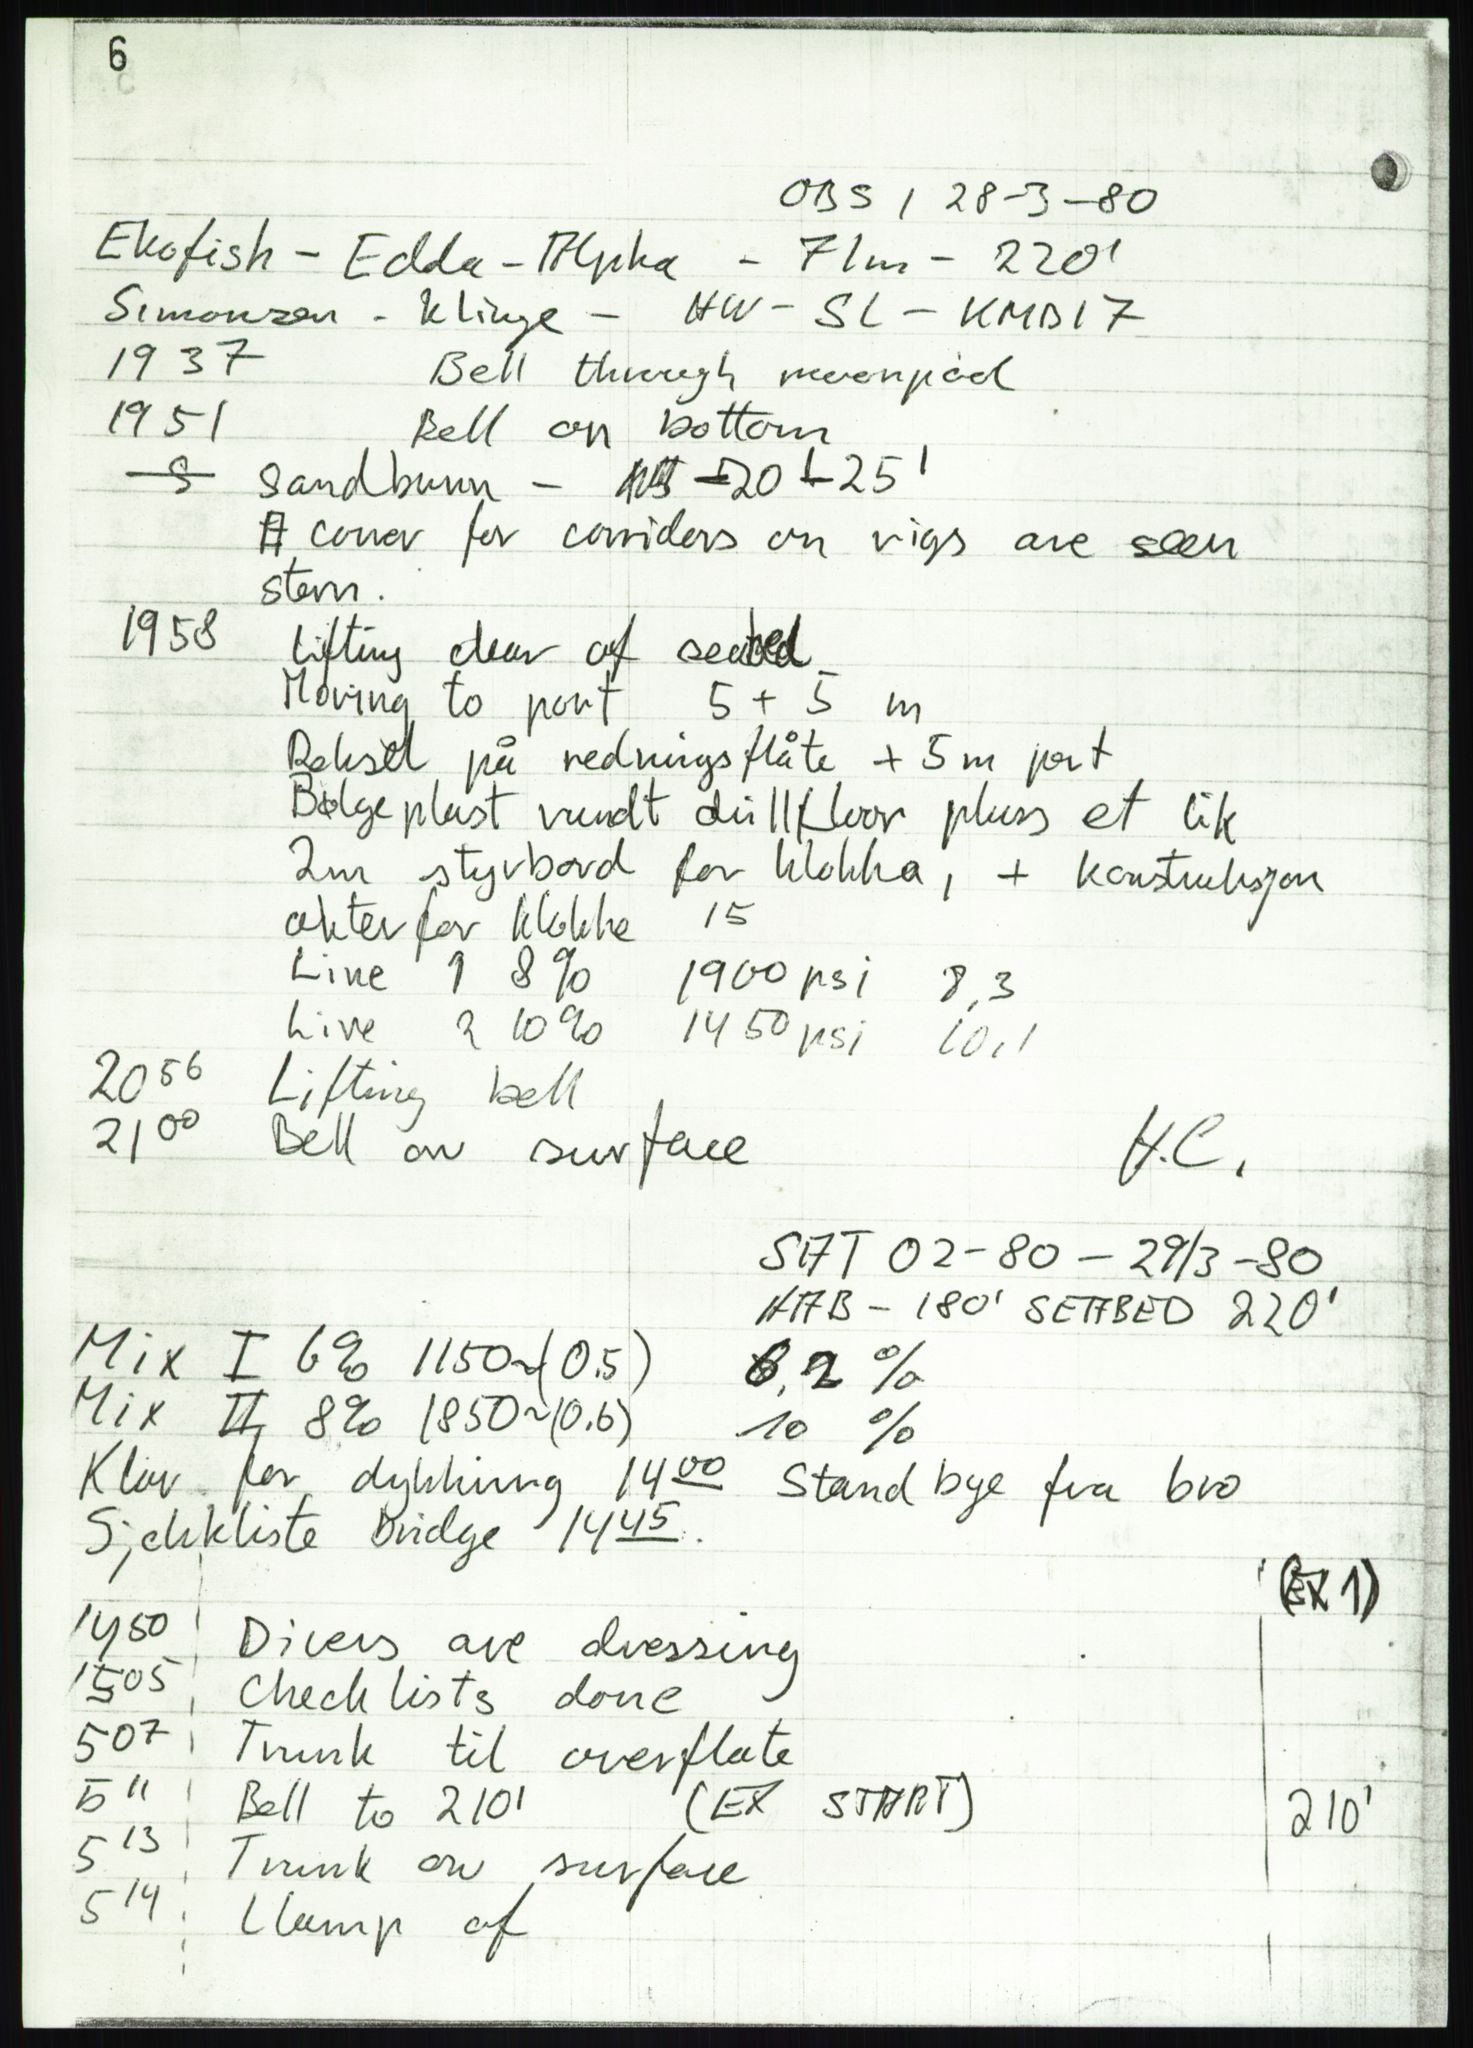 6
OBS 1 28-3-80
Ekofish - Edda - Alpha - 71m - 220'
Simonzen - Klinge - HW - SL - KMB17
1937 Bell through moonpool
1951 Bell on bottom
sandbunn - 20 - 25'
cover for corridors on rigs are seen
stern.
1958 Lifting clear of seabed
Moving to port 5 + 5 m
Deksel på redningsflåte + 5m port
Bølgeplast rundt drillfloor pluss et lik
2m styrbord for klokka, + konstruksjon
akter for klokke 15
Line 1 8% 1900 psi 8,3
Line 2 10% 1450 psi 10,1
2056 Lifting bell
2100 Bell on surface H.C.
SAT 02-80 - 29/3-80
HAB - 180' SEABED 220'
Mix I 6% 1150~(0.5) 6,2 %
Mix II 8% 1850~(0.6) 10 %
Klar for dykking 1400 Stand bye fra bro
Sjekkliste Bridge 1445.
(EX 1)
1450 Divers are dressing
1505 Checklists done
507 Trunk til overflate
511 Bell to 210' (EX START) 210'
513 Trunk on surface
514 Clamp of